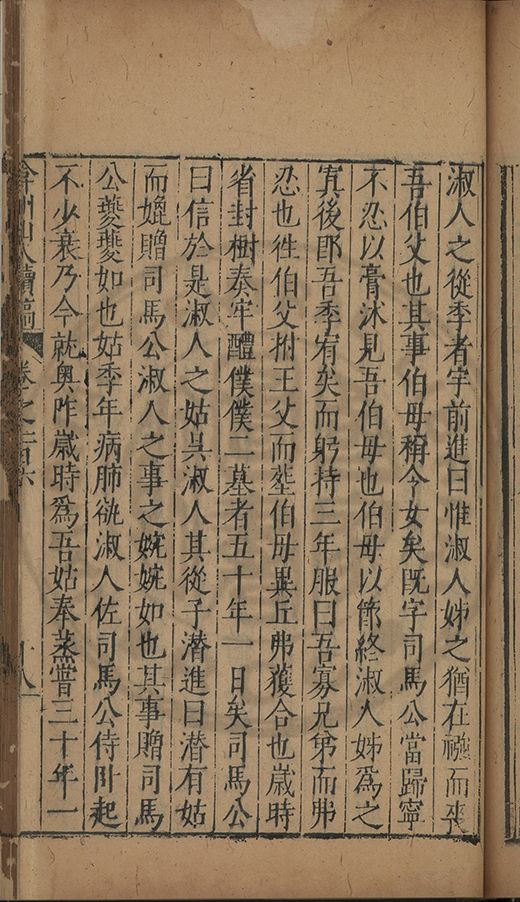 淑人之從季者宇前進曰惟淑人姊之猶在襁而喪
吾伯父也其事伯母稱令女矣既字司馬公當歸寧
不忍以膏沐見吾伯母也伯母以節終淑人姊爲之
寘後郎吾季宥矣而躬持三年服曰吾寡兄弟而弗
忍也徃伯父祔王父而塟伯母異丘弗獲合也歳時
省封樹奏牢醴僕僕二墓者五十年一日矣司馬公
曰信於是淑人之姑吴淑人其從子潛進曰潛有姑
而媲贈司馬公淑人之事之婉婉如也其事贈司馬
公夔夔如也姑季年病肺㑃淑人佐司馬公侍卧起
不少衰乃今就奧阼歳時爲吾姑奉蒸嘗三十年一
弇州山人續稿 卷之一百六 十八